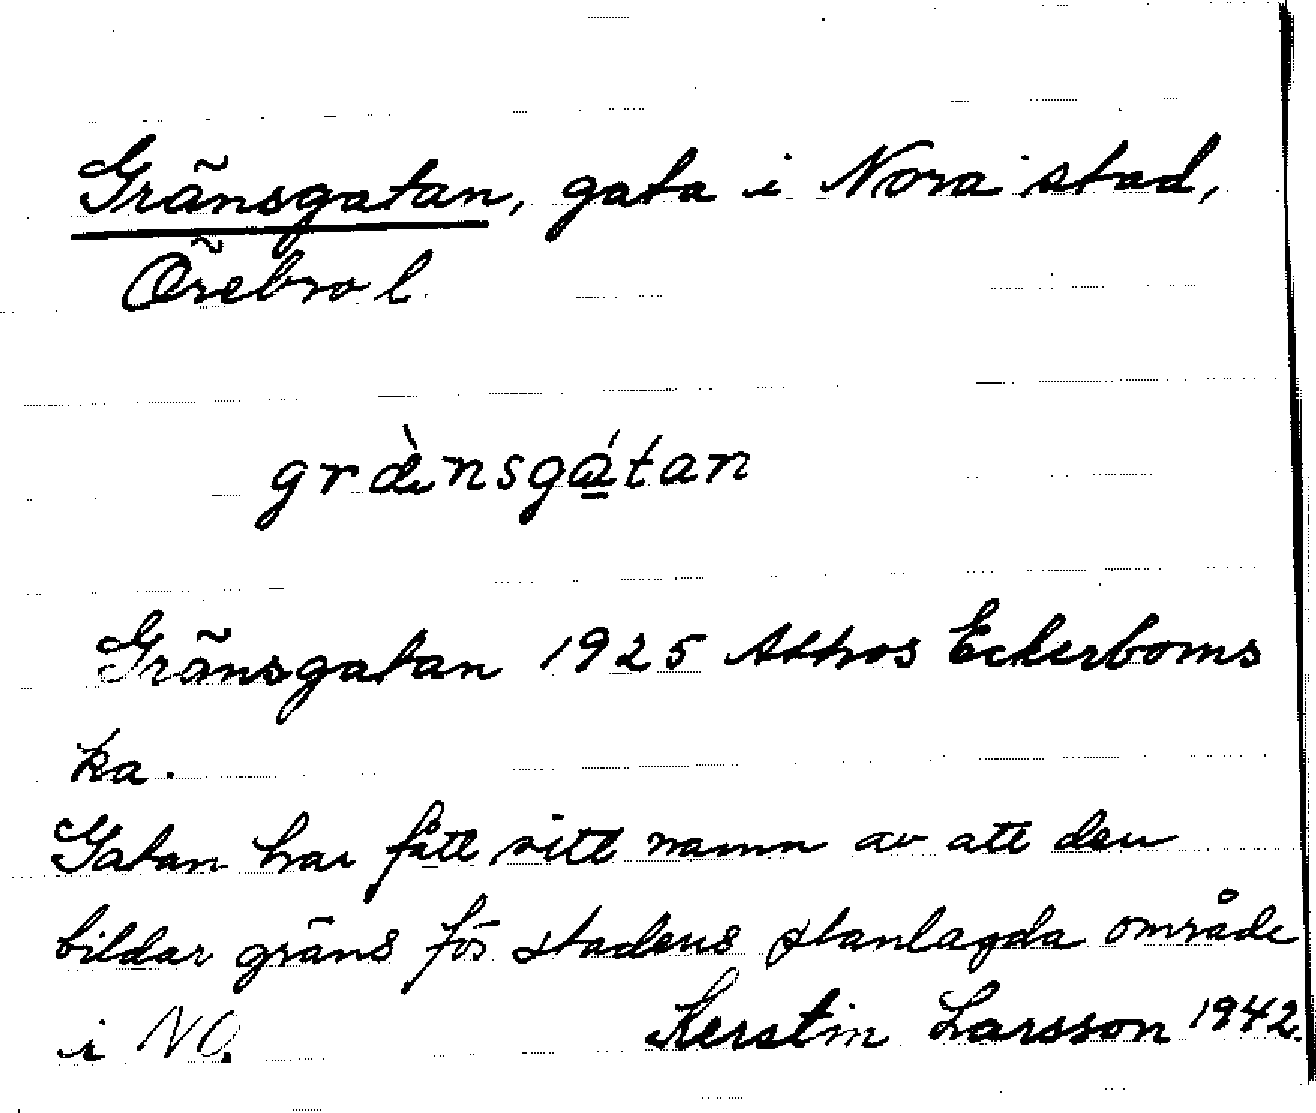 Gränsgatan, gata i Nora stad,
Örebro l.
græ̀nsgátan
Gränsgatan 1925 Athos Eckerboms
ka.
Gatan har fått sitt namn av att den
bildar gräns för stadens planlagda område
i NO.
Kerstin Larsson 1942.